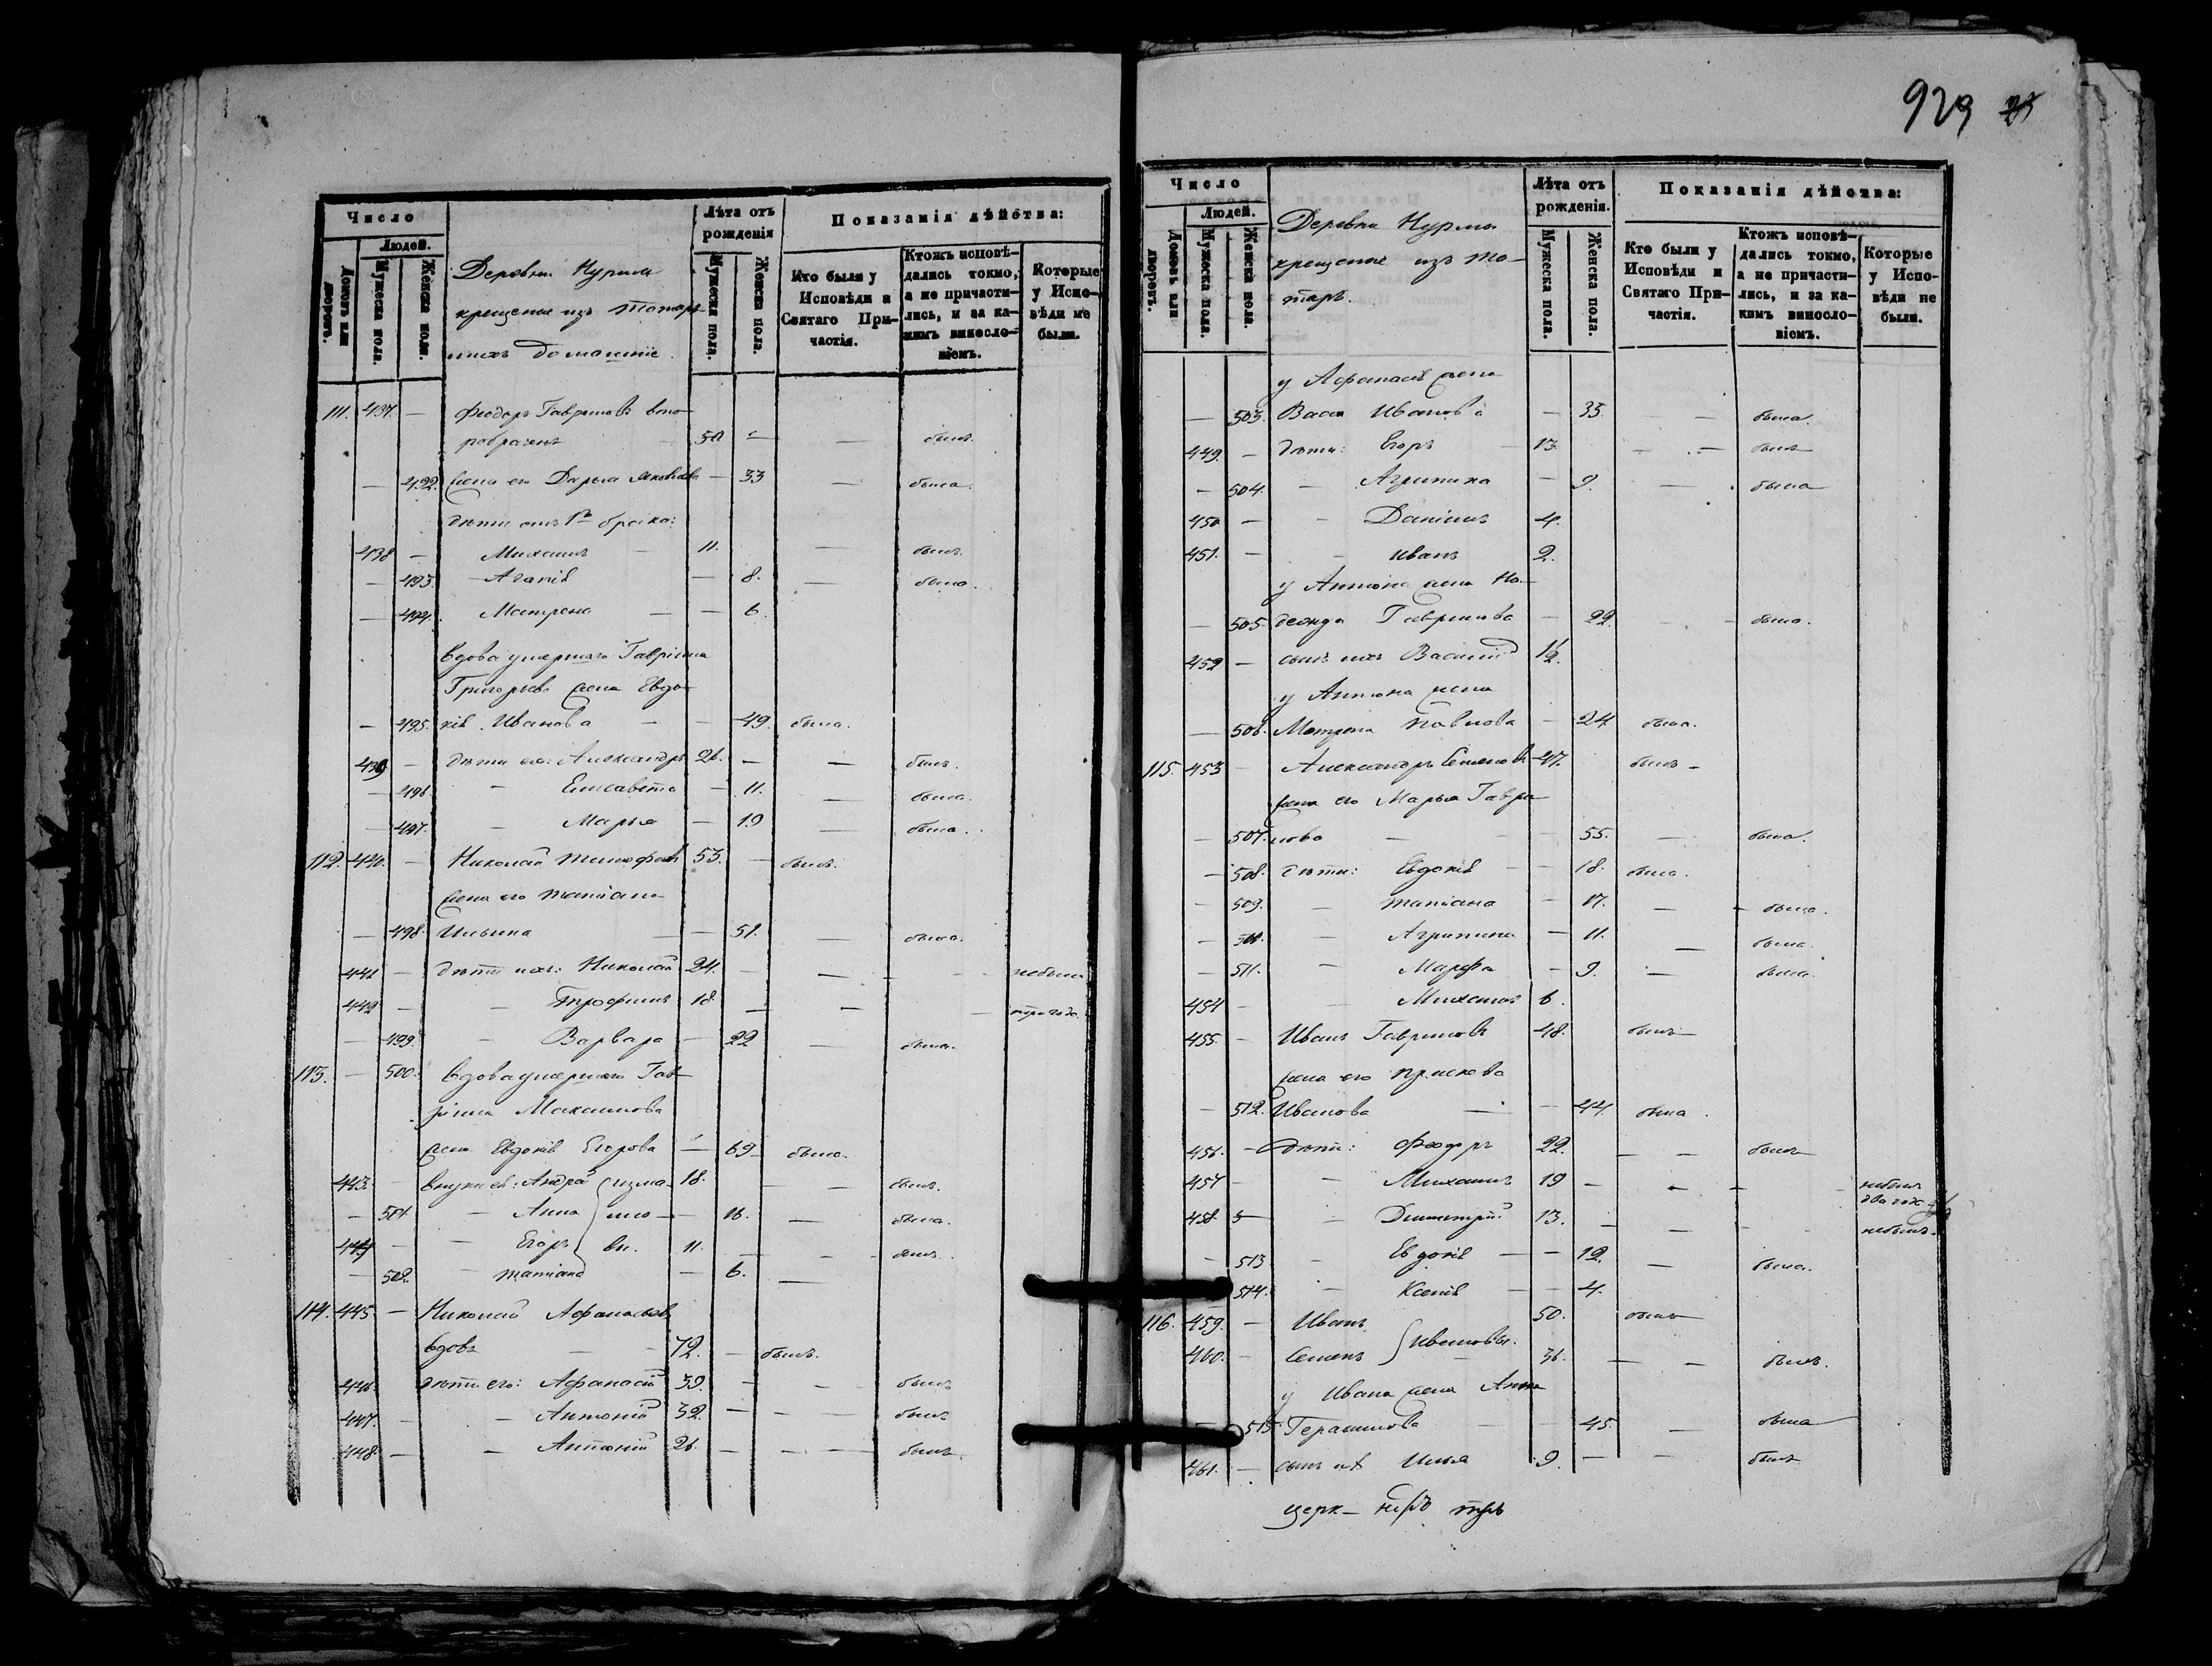 Число
Людей.
Домовъ или дворовъ.
Мужеска пола.
Женска пола.
Деревни Нурма
крещеные изъ Татаръ
ихъ домашніе.
Лѣта отъ рожденія
Мужеска пола.
Женска пола.
Показанія дѣйства:
Кто были у Исповѣди и Святаго Причастія.
Ктожъ исповѣ-
дались токмо,
а не причасти-
лись, и за ка-
кимъ винносло-
віемъ.
Которые
у Испо-
вѣди не
были.
111. 437. — Феодоръ Гавриловъ вто-
робрачный 50 — — былъ.
— 492. жена его Дарья Яковлева — 33 — была.
дѣти отъ 1го брака:
438 — Михаилъ — 11. — былъ.
— 493. — Агапія — 8. — была.
— 494. Матрона — — 6.
вдова умершаго Гавріила
Григорьева жена Евдо-
— 495. кія Иванова — — 49. была.
439 — дѣти ея: Александръ 26. — — былъ.
— 496. — Елисавета — 11. — была.
— 497. — Марья — 19 — была.
112. 440. — Николай Тимофеевъ 53. — былъ.
жена его Татіана
— 498. Ильина — — 51. — была.
441 — дѣти ихъ: Николай 24. — — — небылъ
442 — — Трофимъ 18. — — — три года.
— 499. — Варвара — 22 — была.
113. — 500. вдова умершаго Гав-
ріила Максимова
жена Евдокія Егорова — 69 — была.
443. — внуки ея: Андрей 18. — — былъ.
— 501. — Анна — 16. — была.
444 — — Егоръ 11. — — былъ.
— 502. — Татіана — 6. —
114. 445 — Николай Афанасьевъ
вдовъ — — 72. — былъ.
446. дѣти его: Афанасій 39. — — былъ
447. — — Антоній 32. — — — былъ
448. — — Антоній 26. — — — былъ.
929
Число
Людей.
Домовъ или дворовъ.
Мужеска пола.
Женска пола.
Деревни Нурма
крещеные изъ Та-
таръ.
Лѣта отъ рожденія.
Мужеска пола.
Женска пола.
Показанія дѣйства:
Кто были у Исповѣди и Святаго Причастія.
Ктожъ исповѣ-
дались токмо,
а не причасти-
лись, и за ка-
кимъ винносло-
віемъ.
Которые
у Испо-
вѣди не
были.
у Афанасія жена
— 503. Васса Иванова — 35. — — была.
449. — дѣти: Егоръ — 13. — — былъ
— 504. — Агрипина — 9. — была
450 — — Даніилъ 4.
451. — — Иванъ 2.
у Антона жена На-
— 505. дежда Гаврилова — 22. — — была.
452 — сынъ ихъ Василій 1/2.
у Антона жена
— 506. Матрона Павлова — 24. была.
115. 453 — Александръ Семеновъ 47. былъ —
жена его Марья Гаври-
— 507. лова — — — 55. — была.
— 508. дѣти: Евдокія — — 18. была.
— 509. — Татіана — 17. — — была.
— 510. — Агрипина — 11. — была.
— 511. — Марфа — 9. — была.
454 — — Михаилъ 6.
455. — Иванъ Гавриловъ 48. былъ —
жена его Прискева
— 512. Иванова — — 44. была.
456. — дѣти: Феодоръ 22. — — былъ
457 — — Михаилъ 19 — — — небылъ
два года
458. — — Димитрій 13. — — — небылъ.
— 513 — Евдокія — — 12. — была.
514. — Ксенія — — 4.
116. 459. — Иванъ 50. былъ
460. — Семенъ } Ивановы. — 36. — — былъ.
у Ивана жена Анна
— 515. Герасимова — — 45. — была
461. — сынъ ихъ Илья 9. — — былъ